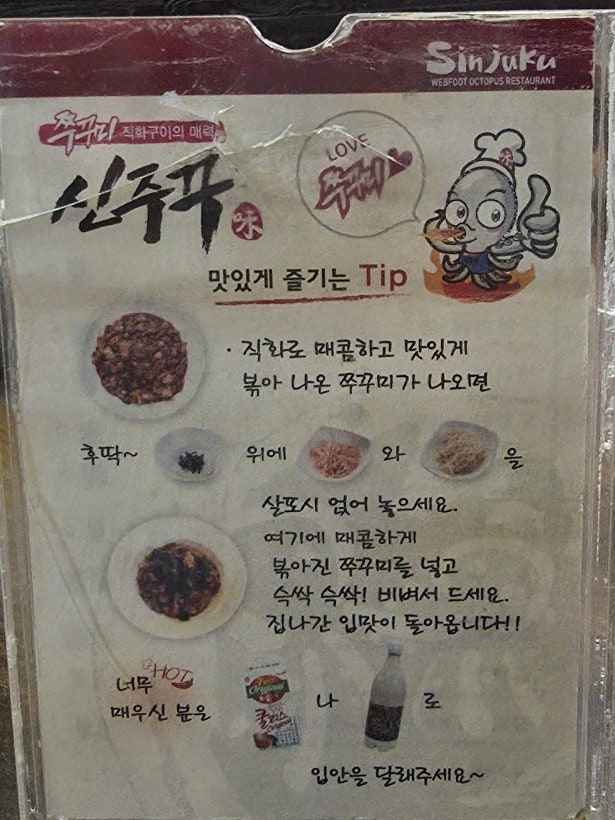 Sinjuku
WEBFOOT OCTOPUS RESTAURANT
쭈꾸미 직화구이의 매력
신주꾸 味
LOVE
쭈꾸미
味
맛있게 즐기는 Tip
· 직화로 매콤하고 맛있게
볶아 나온 쭈꾸미가 나오면
후딱~ 위에 와 을
살포시 얹어 놓으세요.
여기에 매콤하게
볶아진 쭈꾸미를 넣고
슥싹 슥싹! 비벼서 드세요.
집나간 입맛이 돌아옵니다!!
HOT
너무
매우신 분은 나 로
Original
쿨피스
입안을 달래주세요~